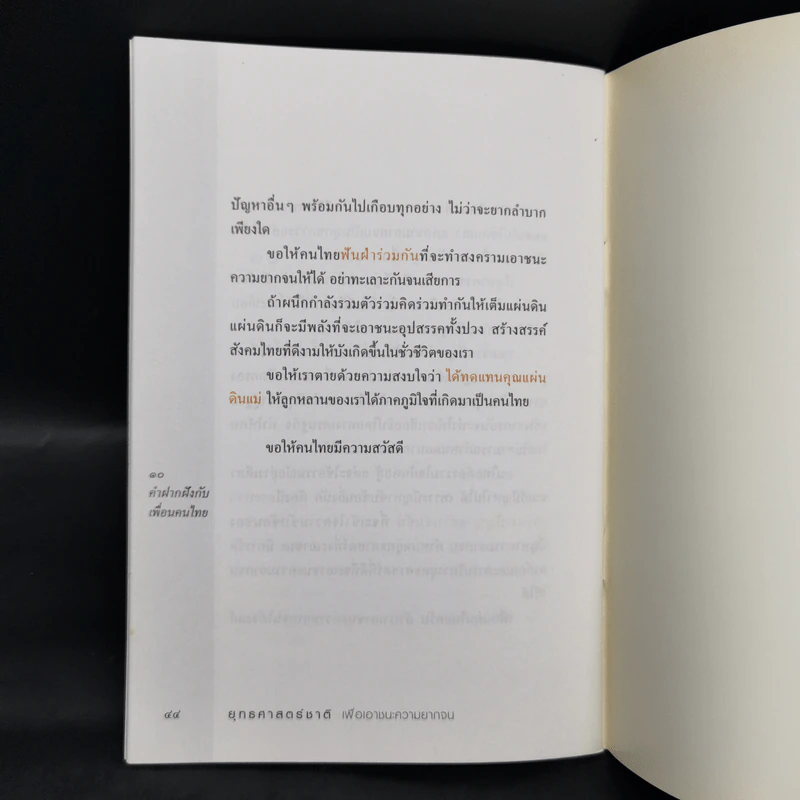 ปัญหาอื่นๆ พร้อมกันไปเกือบทุกอย่าง ไม่ว่าจะยากลำบาก
เพียงใด
ขอให้คนไทยฟันฝ่าร่วมกันที่จะทำสงครามเอาชนะ
ความยากจนให้ได้ อย่าทะเลาะกันจนเสียการ
ถ้าผนึกกำลังรวมตัวร่วมคิดร่วมทำกันให้เต็มแผ่นดิน
แผ่นดินก็จะมีพลังที่จะเอาชนะอุปสรรคทั้งปวง สร้างสรรค์
สังคมไทยที่ดีงามให้บังเกิดขึ้นในชั่วชีวิตของเรา
ขอให้เราตายด้วยความสงบใจว่า ได้ทดแทนคุณแผ่น
ดินแม่ ให้ลูกหลานของเราได้ภาคภูมิใจที่เกิดมาเป็นคนไทย
ขอให้คนไทยมีความสวัสดี
๑๐
คำฝากฝังกับ
เพื่อนคนไทย
๔๔ ยุทธศาสตร์ชาติ เพื่อเอาชนะความยากจน